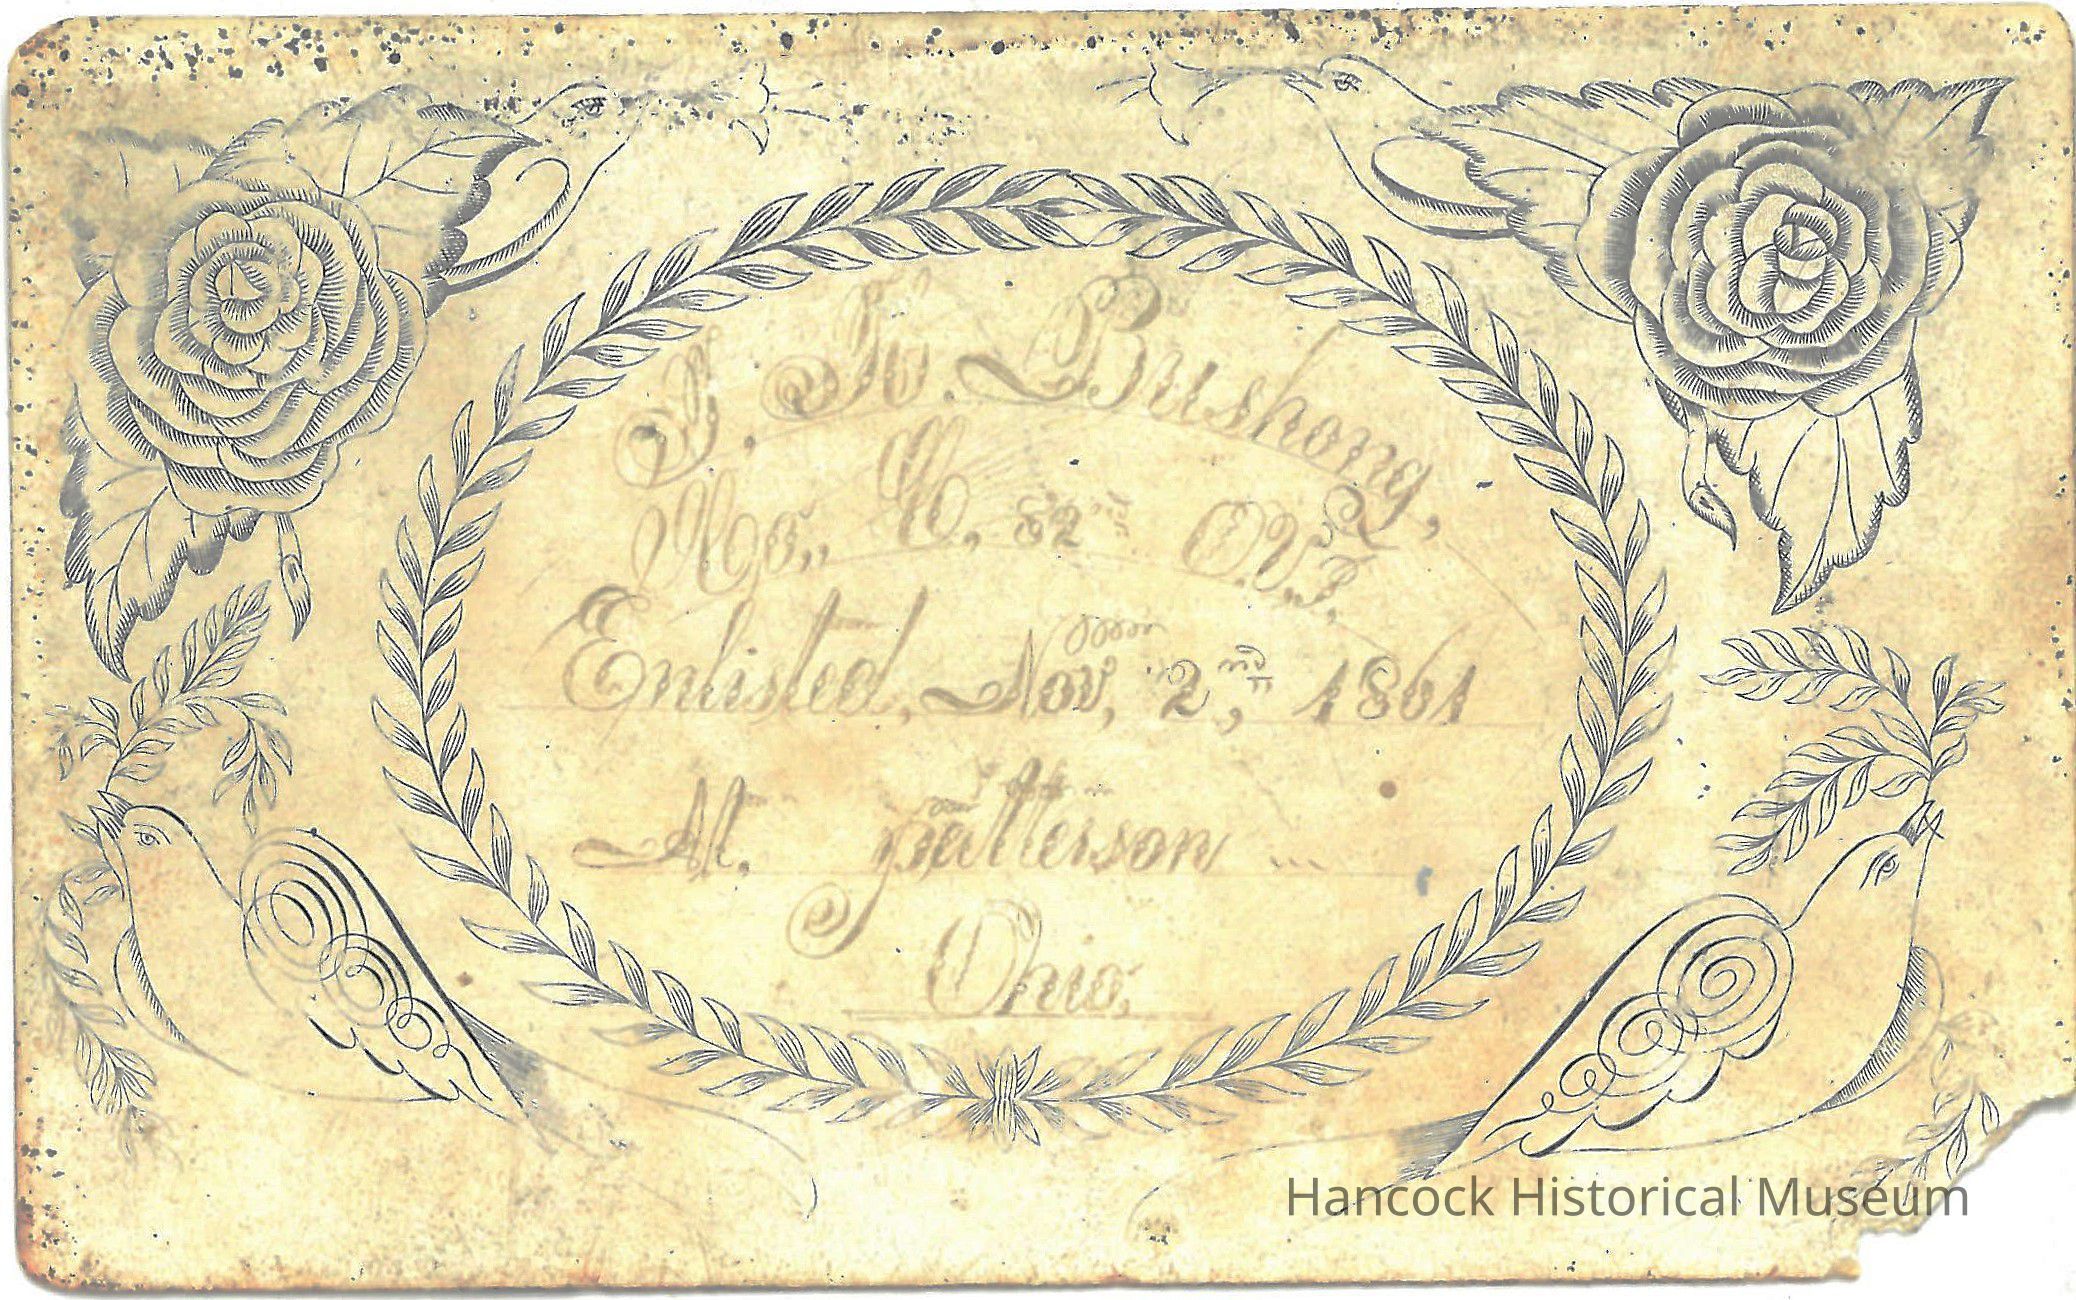 Bushong,
Co., C, 82nd O.V.I.
Enlisted, Nov, 2,nd 1861
At. patterson ...
Ohio.
Hancock Historical Museum